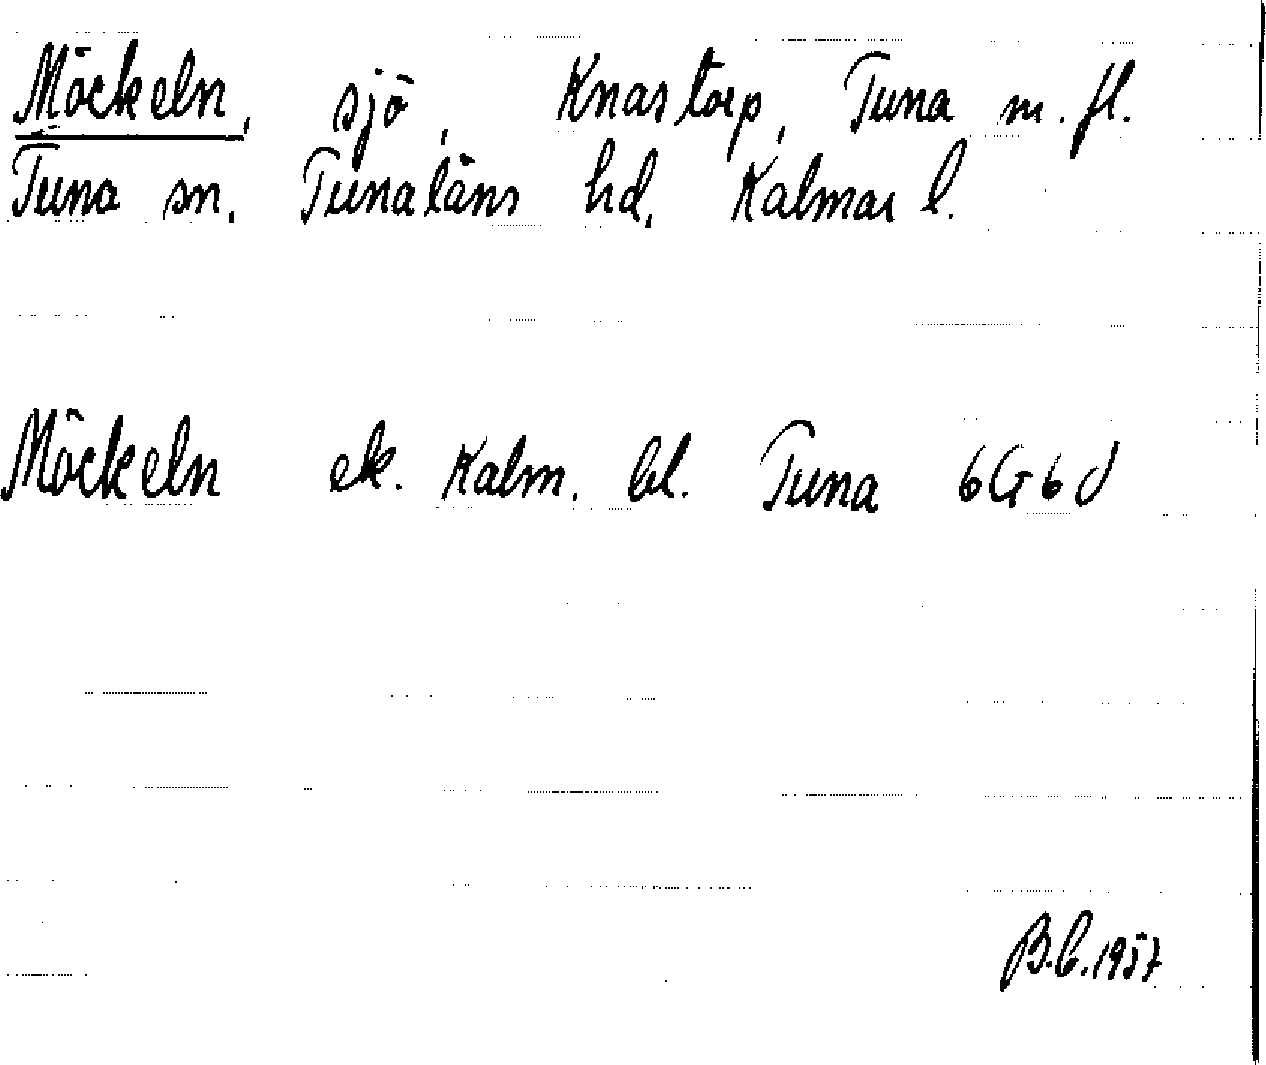 Möckeln, sjö, Knastorp, Tuna m. fl.
Tuna sn. Tunaläns hd. Kalmar l.
Möckeln ek. Kalm. bl. Tuna 6G6d
B.C. 1957